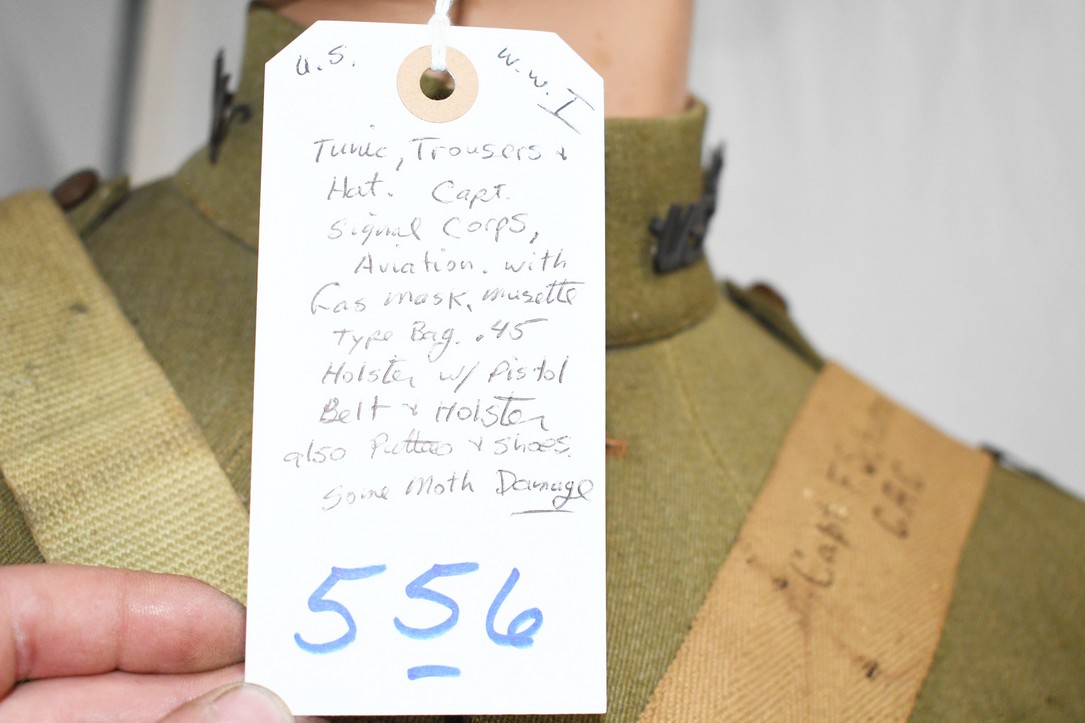 U.S.
W.W.I
Tunic, Trousers &
Hat. Capt.
Signal Corps,
Aviation. with
Gas mask, musette
Type Bag. .45
Holster w/ Pistol
Belt & Holster
also Puttees & shoes.
Some Moth Damage
556
Capt